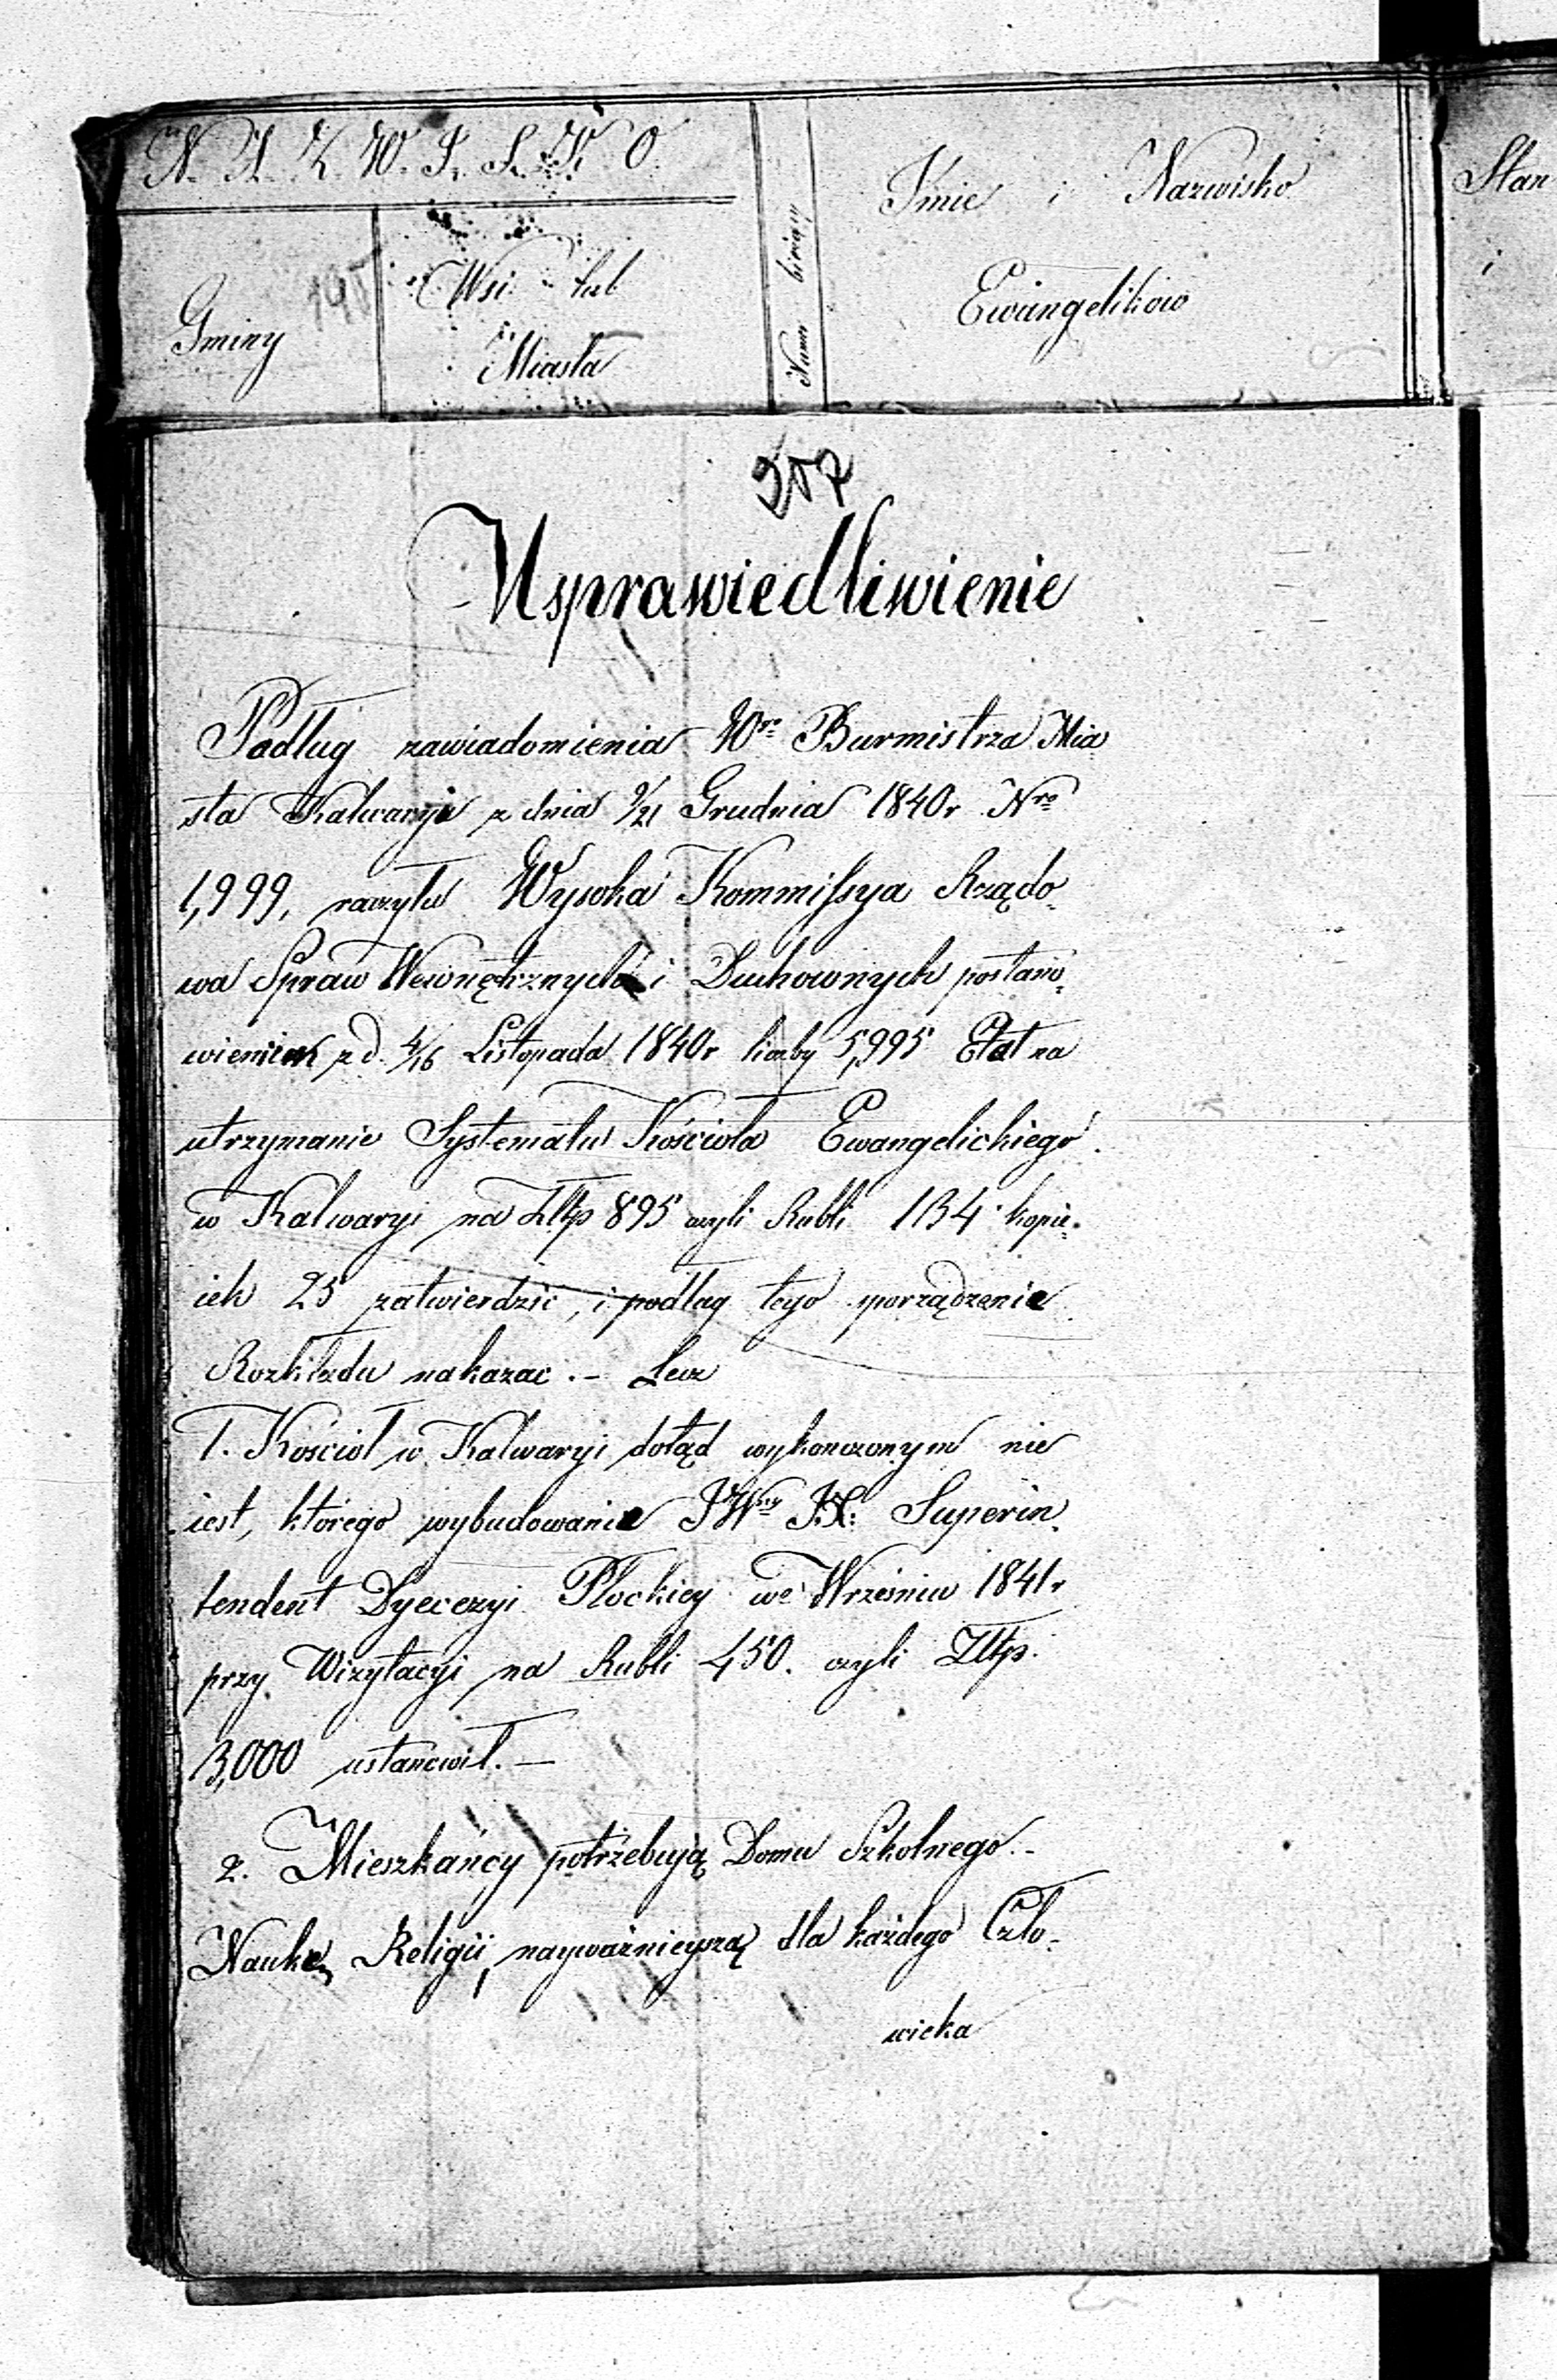 N. A. Z. W. I. S. K. O.
Gminy
Wsi lub
Miasta
Numer bieżący
Imie i Nazwisko
Ewangelików
Stan
i
207
Usprawiedliwienie
Podług zawiadomienia Wgo Burmistrza Mia
sta Kalwaryi z dnia 9/21 Grudnia 1840r Nro
1,999, raczyła Wysoka Kommissya Rządo-
wa Spraw Wewnętrznych i Duchownych postano-
wieniem z d. 4/16 Listopada 1840r liczby 5,995 Etat na
utrzymanie Systematu Kościoła Ewangelickiego
w Kalwaryi na Złtp 895 czyli Rubli 134 kopie-
iek 25 zatwierdzić, i podług tego sporządzenie
Rozkładu nakazać. - Lecz
1. Kościoł w Kalwaryi dotąd wykończonym nie
iest, którego wybudowanie JWny JX: Superin-
tendent Dyecezyi Płockiey we Wrześniu 1841r
przy Wizytacyi na Rubli 450. czyli Złtp.
3,000 ustanowił. -
2. Mieszkańcy potrzebują Domu Szkolnego. -
Naukę Religii, nayważnieyszą dla każdego Czło-
wieka